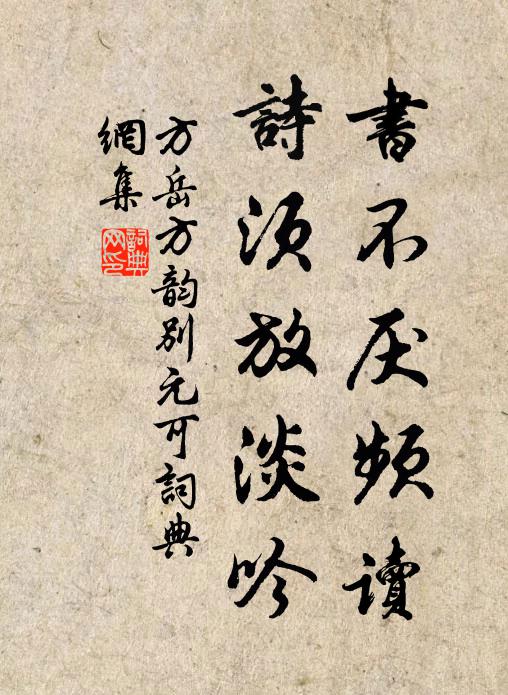 書不厌頻讀
詩須放淡吟
方岳方韵別元可詞典
網集
詞典
网印